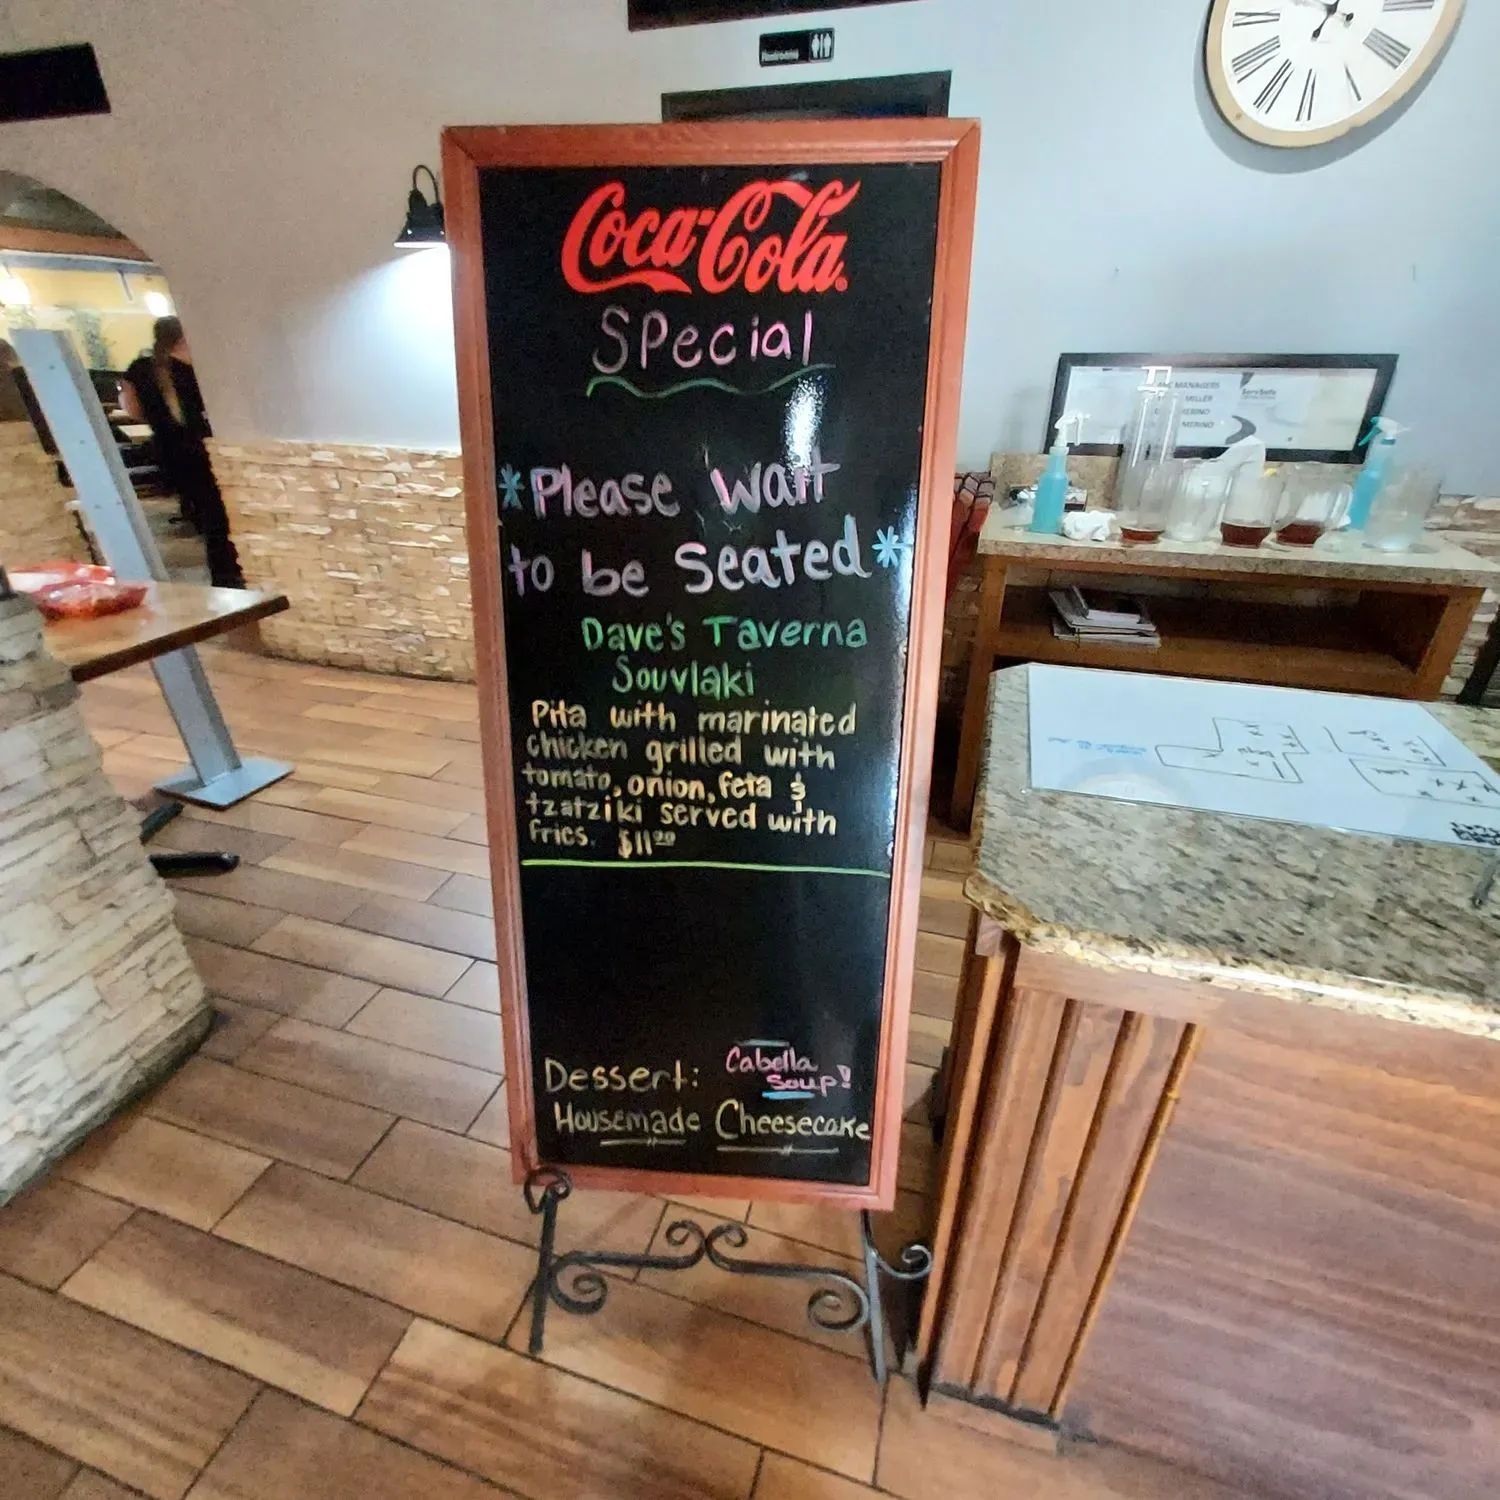 Restrooms
Coca-Cola
Special
*Please wait
to be Seated*
Dave's Taverna
Souvlaki
Pita with marinated
chicken grilled with
tomato, onion, feta &
tzatziki served with
fries. $11.20
Dessert: Cabella
Soup!
Housemade Cheesecake
MANAGERS
MILLER
MERINO
MERINO
ServSafe